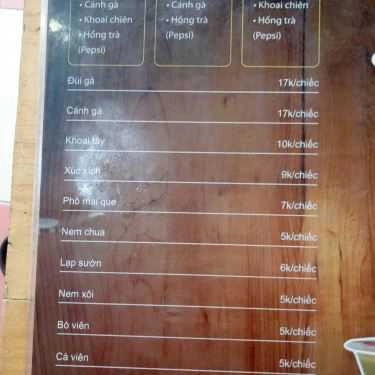 • Cánh gà
• Khoai chiên
• Hồng trà
(Pepsi)
• Cánh gà
• Khoai chiên
• Hồng trà
(Pepsi)
• Khoai chiên
• Hồng trà
(Pepsi)
Đùi gà 17k/chiếc
Cánh gà 17k/chiếc
Khoai tây 10k/chiếc
Xúc xích 9k/chiếc
Phô mai que 7k/chiếc
Nem chua 5k/chiếc
Lạp sườn 6k/chiếc
Nem xôi 5k/chiếc
Bò viên 5k/chiếc
Cá viên 5k/chiếc